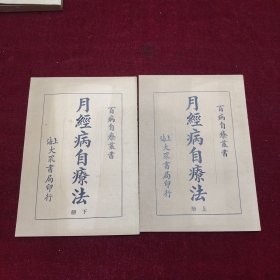 百病自療叢書
月經病自療法
下冊
上海大眾書局印行
百病自療叢書
月經病自療法
上冊
上海大眾書局印行